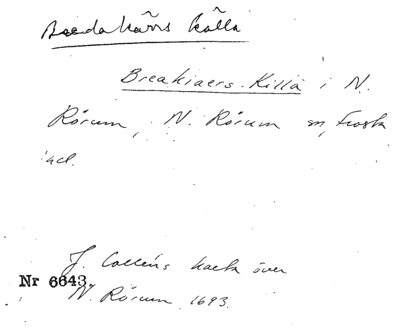 Bredakärrs källa
Breakiaers-Killa i N.
Rörum, N. Rörum sn, Frosta
hd.
J. Calléns karta över
Nr 6643.
N. Rörum 1693.